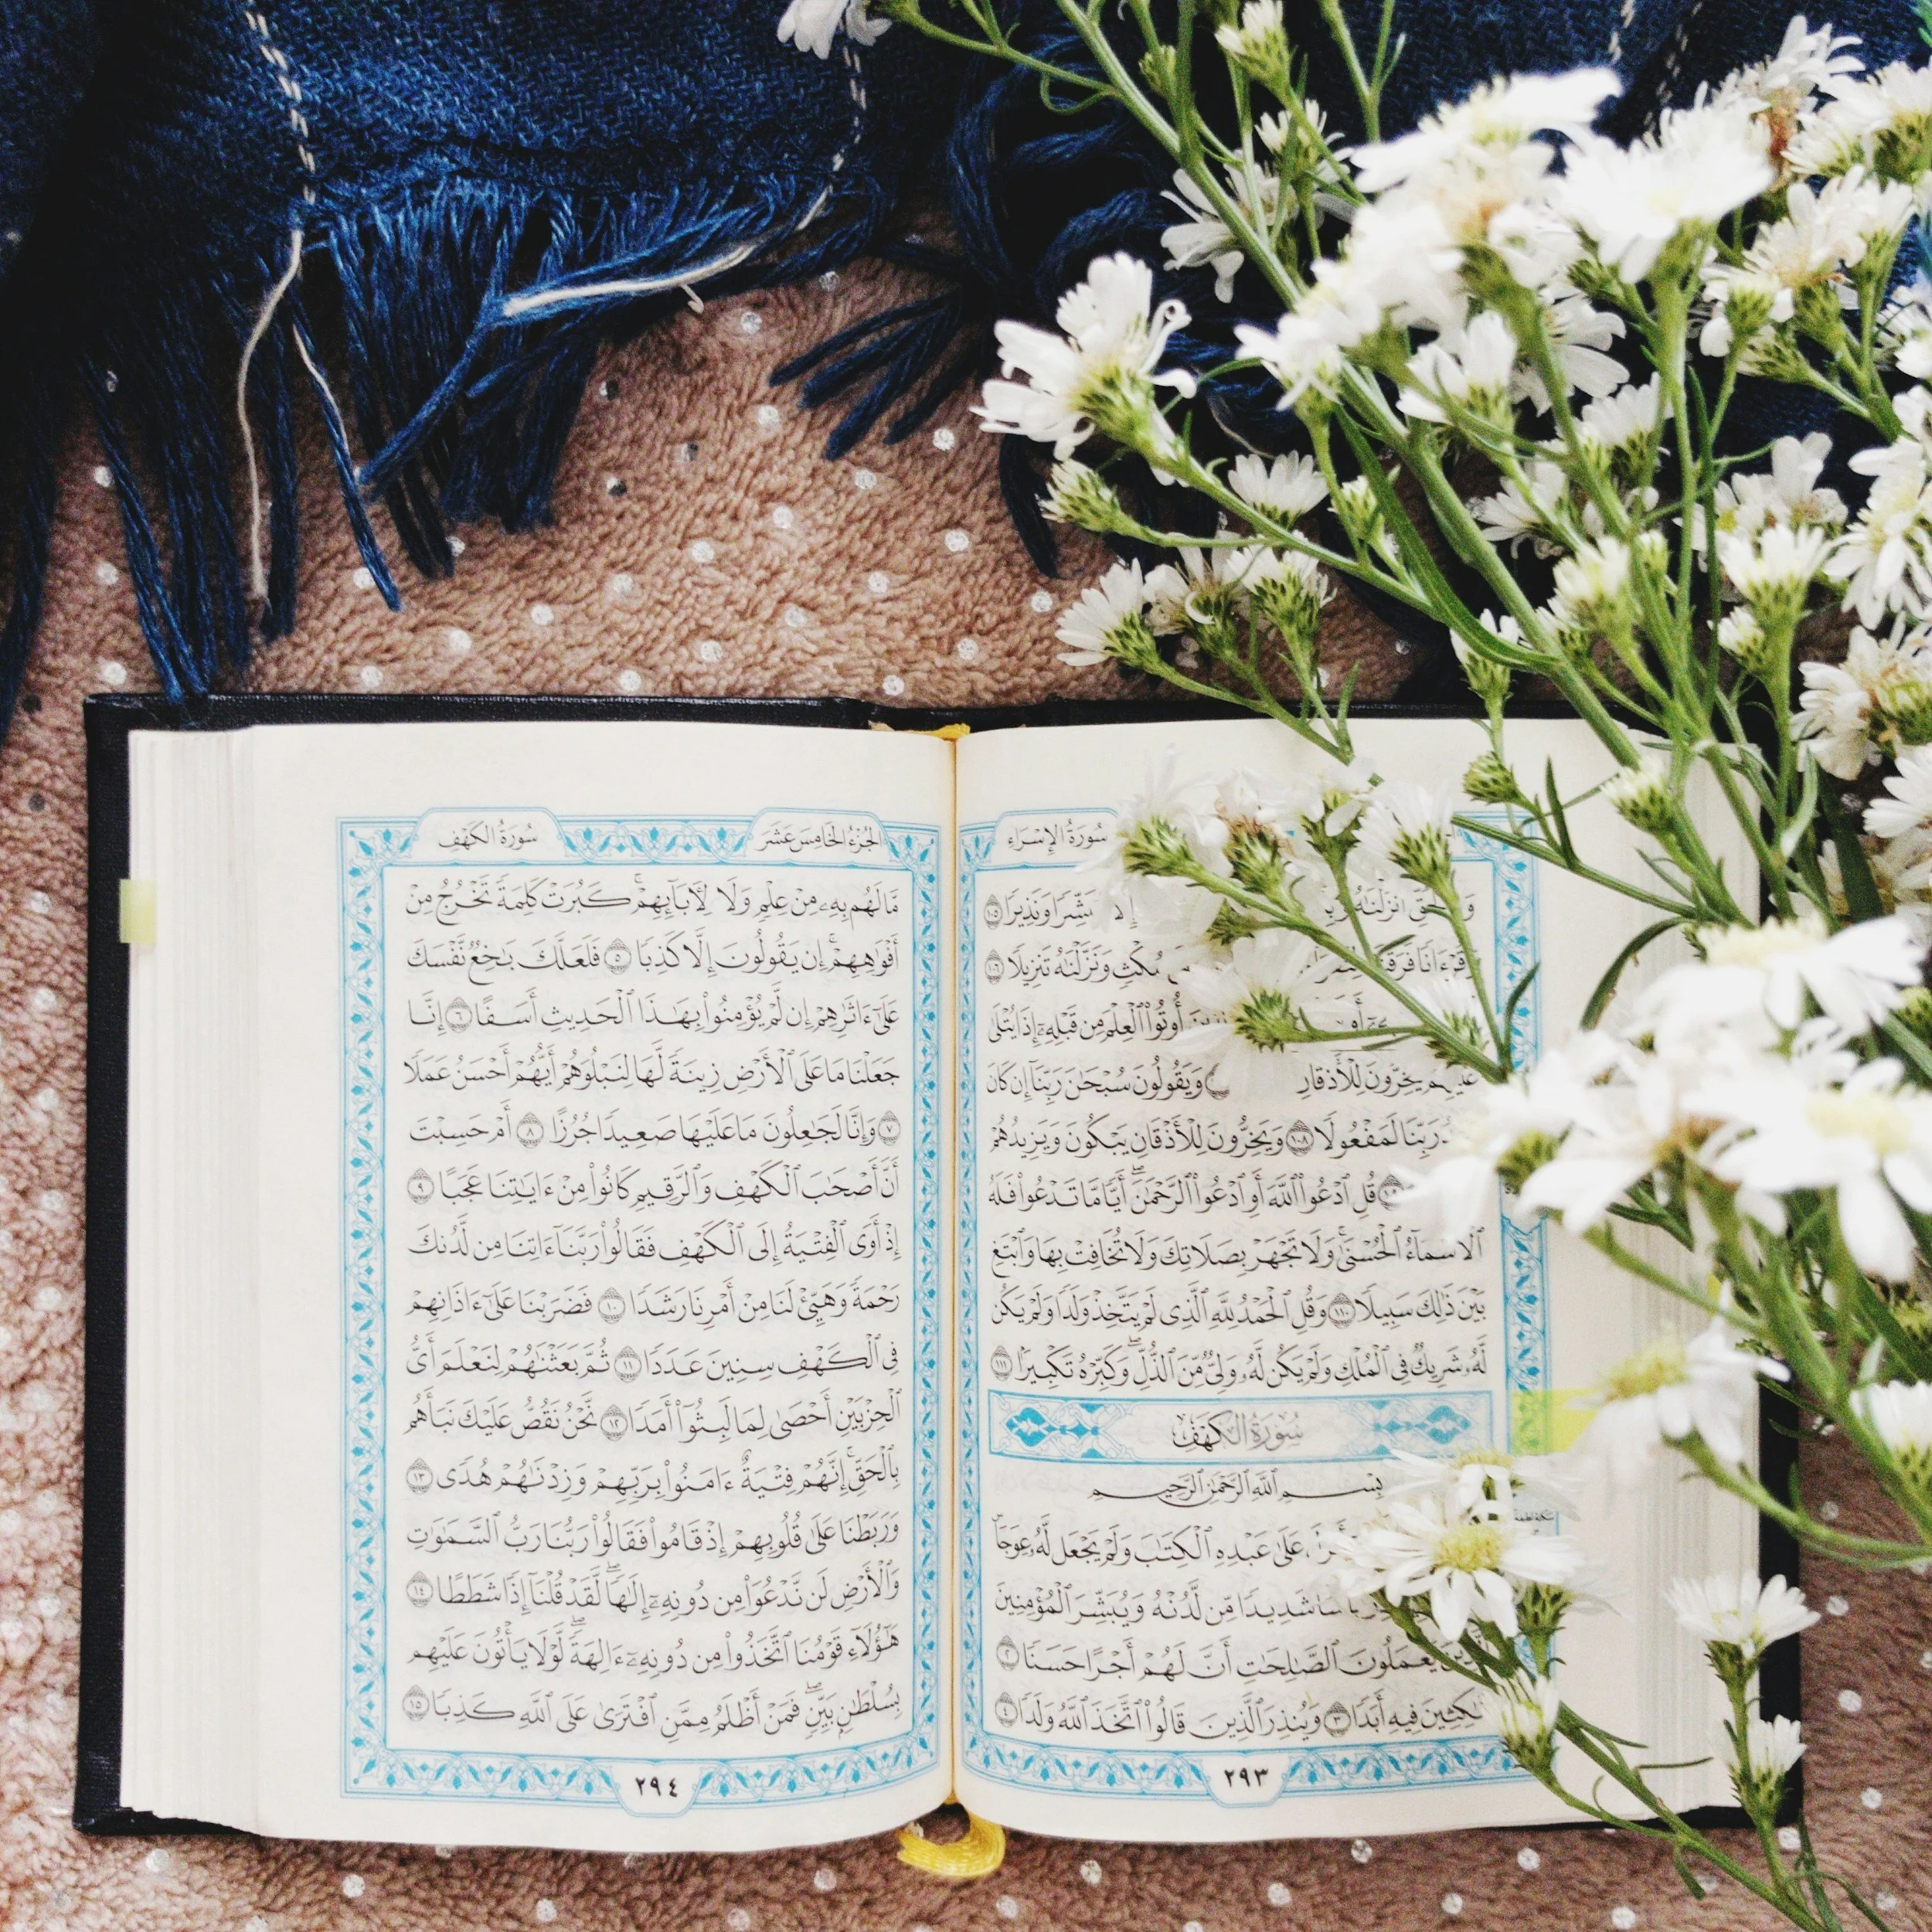 سُورَةُ الإِسْرَاءِ
أَنزَلْنَٰهُ
إِلَّا مُبَشِّرًا وَنَذِيرًا ١٠٥
مُكْثٍ وَنَزَّلْنَٰهُ تَنزِيلًا ١٠٦
أُوتُوا۟ ٱلْعِلْمَ مِن قَبْلِهِۦٓ إِذَا يُتْلَىٰ
عَلَيْهِمْ يَخِرُّونَ لِلْأَذْقَانِ وَيَقُولُونَ سُبْحَٰنَ رَبِّنَآ إِن كَانَ
رَبِّنَا لَمَفْعُولًا ١٠٨ وَيَخِرُّونَ لِلْأَذْقَانِ يَبْكُونَ وَيَزِيدُهُمْ
قُلِ ٱدْعُوا۟ ٱللَّهَ أَوِ ٱدْعُوا۟ ٱلرَّحْمَٰنَ ۖ أَيًّا مَّا تَدْعُوا۟ فَلَهُ
ٱلْأَسْمَآءُ ٱلْحُسْنَىٰ ۚ وَلَا تَجْهَرْ بِصَلَاتِكَ وَلَا تُخَافِتْ بِهَا وَٱبْتَغِ
بَيْنَ ذَٰلِكَ سَبِيلًا ١١٠ وَقُلِ ٱلْحَمْدُ لِلَّهِ ٱلَّذِى لَمْ يَتَّخِذْ وَلَدًا وَلَمْ يَكُن
لَّهُۥ شَرِيكٌ فِى ٱلْمُلْكِ وَلَمْ يَكُن لَّهُۥ وَلِىٌّ مِّنَ ٱلذُّلِّ ۖ وَكَبِّرْهُ تَكْبِيرًۢا ١١١
سُورَةُ الكَهْفِ
بِسْمِ ٱللَّهِ ٱلرَّحْمَٰنِ ٱلرَّحِيمِ
عَلَىٰ عَبْدِهِ ٱلْكِتَٰبَ وَلَمْ يَجْعَل لَّهُۥ عِوَجَا
شَدِيدًا مِّن لَّدُنْهُ وَيُبَشِّرَ ٱلْمُؤْمِنِينَ
يَعْمَلُونَ ٱلصَّٰلِحَٰتِ أَنَّ لَهُمْ أَجْرًا حَسَنًا ٢
مَّٰكِثِينَ فِيهِ أَبَدًا ٣ وَيُنذِرَ ٱلَّذِينَ قَالُوا۟ ٱتَّخَذَ ٱللَّهُ وَلَدًا ٤
٢٩٣
الجُزْءُ الخَامِسَ عَشَرَ
سُورَةُ الكَهْفِ
مَّا لَهُم بِهِۦ مِنْ عِلْمٍ وَلَا لِـَٔابَآئِهِمْ ۚ كَبُرَتْ كَلِمَةً تَخْرُجُ مِنْ
أَفْوَٰهِهِمْ ۚ إِن يَقُولُونَ إِلَّا كَذِبًا ٥ فَلَعَلَّكَ بَٰخِعٌ نَّفْسَكَ
عَلَىٰٓ ءَاثَٰرِهِمْ إِن لَّمْ يُؤْمِنُوا۟ بِهَٰذَا ٱلْحَدِيثِ أَسَفًا ٦ إِنَّا
جَعَلْنَا مَا عَلَى ٱلْأَرْضِ زِينَةً لَّهَا لِنَبْلُوَهُمْ أَيُّهُمْ أَحْسَنُ عَمَلًا
٧ وَإِنَّا لَجَٰعِلُونَ مَا عَلَيْهَا صَعِيدًا جُرُزًا ٨ أَمْ حَسِبْتَ
أَنَّ أَصْحَٰبَ ٱلْكَهْفِ وَٱلرَّقِيمِ كَانُوا۟ مِنْ ءَايَٰتِنَا عَجَبًا ٩
إِذْ أَوَى ٱلْفِتْيَةُ إِلَى ٱلْكَهْفِ فَقَالُوا۟ رَبَّنَآ ءَاتِنَا مِن لَّدُنكَ
رَحْمَةً وَهَيِّئْ لَنَا مِنْ أَمْرِنَا رَشَدًا ١٠ فَضَرَبْنَا عَلَىٰٓ ءَاذَانِهِمْ
فِى ٱلْكَهْفِ سِنِينَ عَدَدًا ١١ ثُمَّ بَعَثْنَٰهُمْ لِنَعْلَمَ أَىُّ
ٱلْحِزْبَيْنِ أَحْصَىٰ لِمَا لَبِثُوٓا۟ أَمَدًا ١٢ نَّحْنُ نَقُصُّ عَلَيْكَ نَبَأَهُم
بِٱلْحَقِّ ۚ إِنَّهُمْ فِتْيَةٌ ءَامَنُوا۟ بِرَبِّهِمْ وَزِدْنَٰهُمْ هُدًى ١٣
وَرَبَطْنَا عَلَىٰ قُلُوبِهِمْ إِذْ قَامُوا۟ فَقَالُوا۟ رَبُّنَا رَبُّ ٱلسَّمَٰوَٰتِ
وَٱلْأَرْضِ لَن نَّدْعُوَا۟ مِن دُونِهِۦٓ إِلَٰهًا ۖ لَّقَدْ قُلْنَآ إِذًا شَطَطًا ١٤
هَٰٓؤُلَآءِ قَوْمُنَا ٱتَّخَذُوا۟ مِن دُونِهِۦٓ ءَالِهَةً ۖ لَّوْلَا يَأْتُونَ عَلَيْهِم
بِسُلْطَٰنٍۭ بَيِّنٍ ۖ فَمَنْ أَظْلَمُ مِمَّنِ ٱفْتَرَىٰ عَلَى ٱللَّهِ كَذِبًا ١٥
٢٩٤